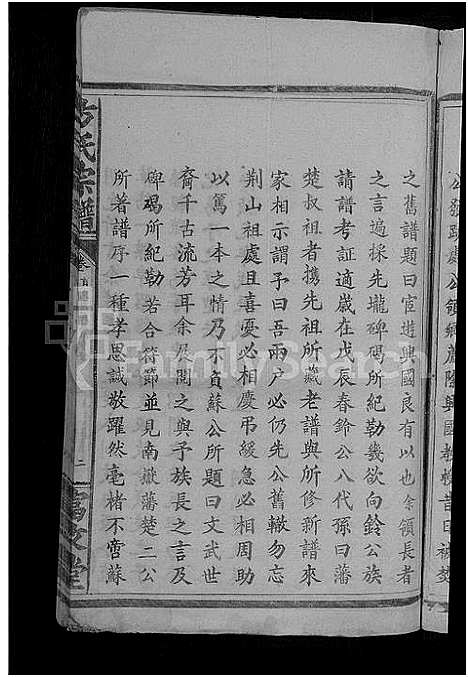 公領鄉薦隆興國教授昔曰被楚
之舊譜題曰宦遊興國良有以也余領長者
之言遍採先壠碑碣所紀勒幾欲向鈴公族
請譜考証適歲在戊辰春鈴公八代孫曰藩
楚叔祖者攜先祖所藏老譜與所修新譜來
家相示謂予曰吾兩户必仍先公舊轍勿忘
荆山祖處且喜憂必相慶弔緩急必相周助
以篤一本之情乃不負蘇公所題曰文武世
裔千古流芳耳余及閱之與予族長之言及
碑碣所紀勒若合符節並見南嶽藩楚二公
所著譜序一種孝思誠敬躍然毫楮不啻蘇
方氏宗譜
卷
二
富文堂
FamilySearch